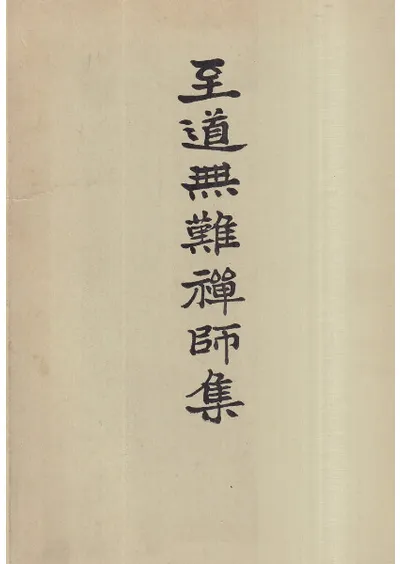 至道無難禅師集